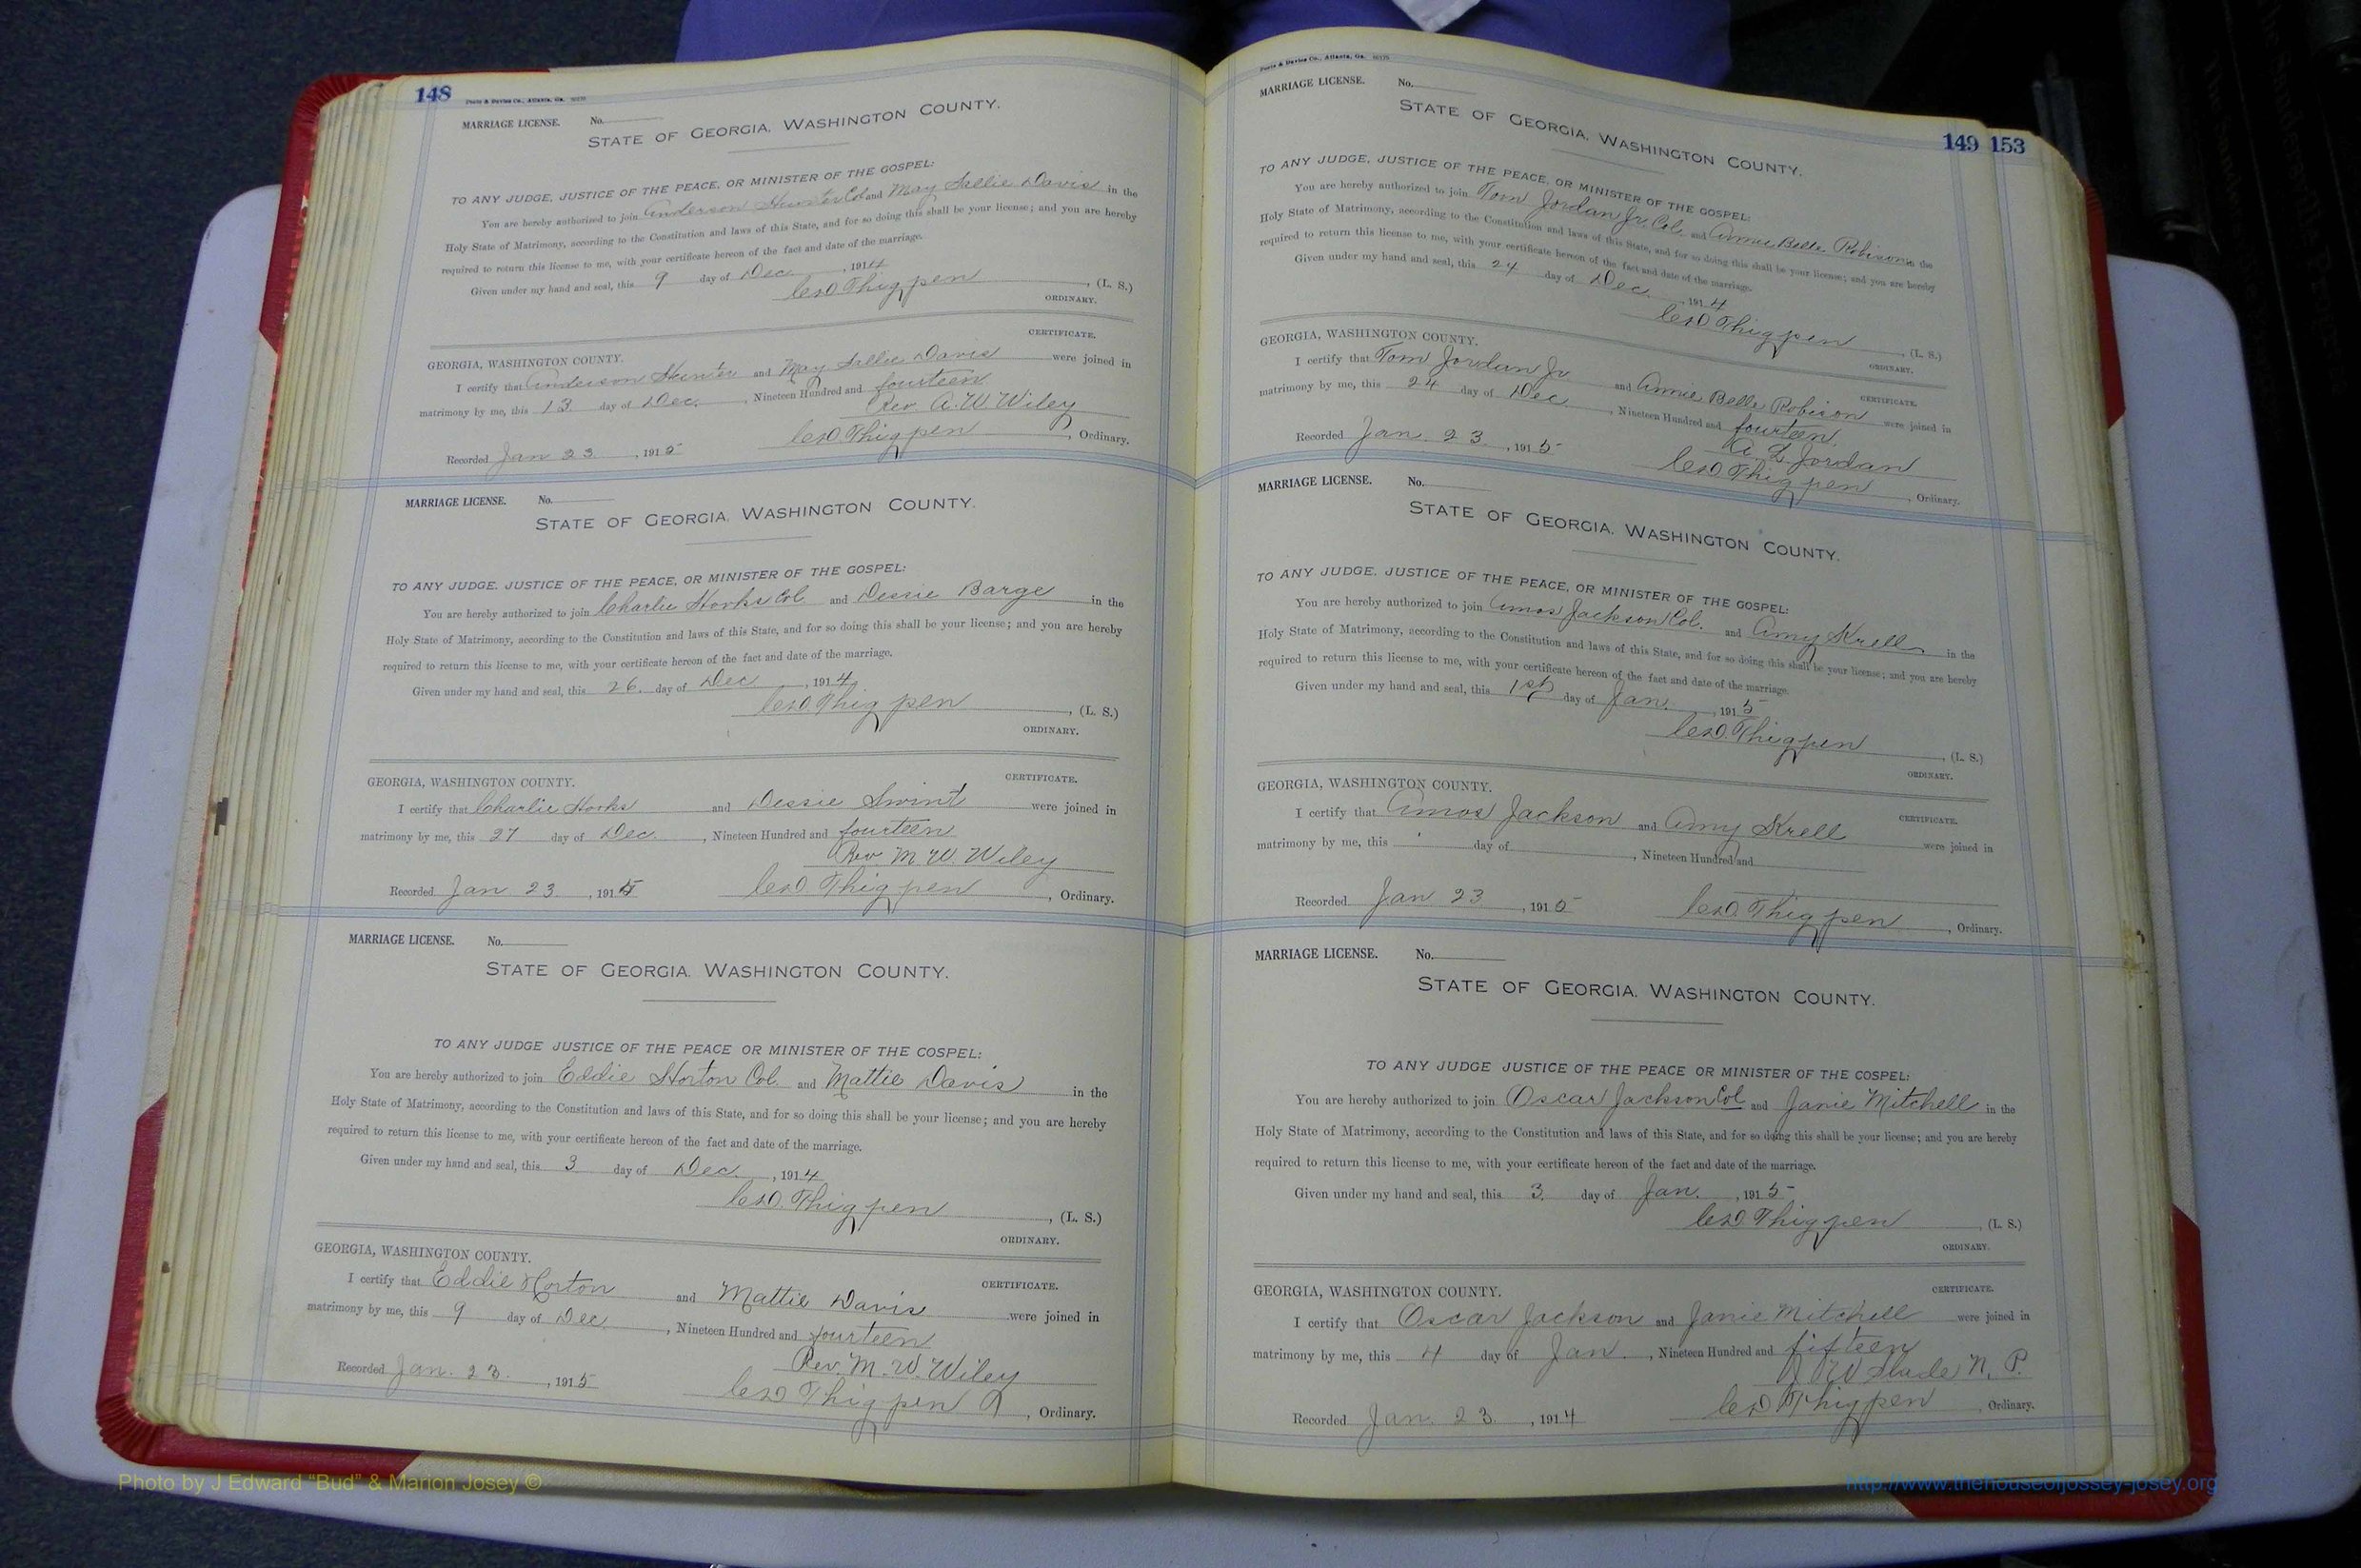 148 Foote & Davies Co., Atlanta, Ga.
MARRIAGE LICENSE. No.
STATE OF GEORGIA, WASHINGTON COUNTY.
TO ANY JUDGE, JUSTICE OF THE PEACE, OR MINISTER OF THE GOSPEL:
You are hereby authorized to join Anderson Hunter Col and May Sallie Davis in the
Holy State of Matrimony, according to the Constitution and laws of this State, and for so doing this shall be your license; and you are hereby
required to return this license to me, with your certificate hereon of the fact and date of the marriage.
Given under my hand and seal, this 9 day of Dec. , 1914
Thigpen , (L. S.)
ORDINARY.
CERTIFICATE.
GEORGIA, WASHINGTON COUNTY.
I certify that Anderson Hunter and May Sallie Davis were joined in
matrimony by me, this 13 day of Dec. , Nineteen Hundred and fourteen
Rev. A. W. Wiley
Recorded Jan 23 , 1915 Thigpen , Ordinary.
MARRIAGE LICENSE. No.
STATE OF GEORGIA, WASHINGTON COUNTY.
TO ANY JUDGE, JUSTICE OF THE PEACE, OR MINISTER OF THE GOSPEL:
You are hereby authorized to join Charlie Hooks Col. and Dessie Barge in the
Holy State of Matrimony, according to the Constitution and laws of this State, and for so doing this shall be your license; and you are hereby
required to return this license to me, with your certificate hereon of the fact and date of the marriage.
Given under my hand and seal, this 26. day of Dec , 1914
Thigpen , (L. S.)
ORDINARY.
CERTIFICATE.
GEORGIA, WASHINGTON COUNTY.
I certify that Charlie Hooks and Dessie Swint were joined in
matrimony by me, this 27 day of Dec. , Nineteen Hundred and fourteen
Rev. M. W. Wiley
Recorded Jan 23 , 1915 Thigpen , Ordinary.
MARRIAGE LICENSE. No.
STATE OF GEORGIA, WASHINGTON COUNTY.
TO ANY JUDGE JUSTICE OF THE PEACE OR MINISTER OF THE GOSPEL:
You are hereby authorized to join Eddie Horton Col. and Mattie Davis in the
Holy State of Matrimony, according to the Constitution and laws of this State, and for so doing this shall be your license; and you are hereby
required to return this license to me, with your certificate hereon of the fact and date of the marriage.
Given under my hand and seal, this 3 day of Dec. , 1914
Thigpen , (L. S.)
ORDINARY.
GEORGIA, WASHINGTON COUNTY.
CERTIFICATE.
I certify that Eddie Horton and Mattie Davis were joined in
matrimony by me, this 9 day of Dec. , Nineteen Hundred and fourteen
Rev. M. W. Wiley
Recorded Jan. 23. , 1915 Thigpen , Ordinary.
Foote & Davies Co., Atlanta, Ga.
149 153
MARRIAGE LICENSE. No.
STATE OF GEORGIA, WASHINGTON COUNTY.
TO ANY JUDGE, JUSTICE OF THE PEACE, OR MINISTER OF THE GOSPEL:
You are hereby authorized to join Tom Jordan Jr. Col. and Annie Belle Robison in the
Holy State of Matrimony, according to the Constitution and laws of this State, and for so doing this shall be your license; and you are hereby
required to return this license to me, with your certificate hereon of the fact and date of the marriage.
Given under my hand and seal, this 24 day of Dec. , 1914
Thigpen , (L. S.)
ORDINARY.
GEORGIA, WASHINGTON COUNTY.
CERTIFICATE.
I certify that Tom Jordan Jr and Annie Belle Robison were joined in
matrimony by me, this 24 day of Dec. , Nineteen Hundred and fourteen.
A. L. Jordan
Recorded Jan. 23. , 1915 Thigpen , Ordinary.
MARRIAGE LICENSE. No.
STATE OF GEORGIA, WASHINGTON COUNTY.
TO ANY JUDGE, JUSTICE OF THE PEACE, OR MINISTER OF THE GOSPEL:
You are hereby authorized to join Amos Jackson Col. and Amy Krell in the
Holy State of Matrimony, according to the Constitution and laws of this State, and for so doing this shall be your license; and you are hereby
required to return this license to me, with your certificate hereon of the fact and date of the marriage.
Given under my hand and seal, this 1st day of Jan. , 1915
Thigpen , (L. S.)
ORDINARY.
GEORGIA, WASHINGTON COUNTY.
CERTIFICATE.
I certify that Amos Jackson and Amy Krell were joined in
matrimony by me, this day of , Nineteen Hundred and
Recorded Jan 23 , 1915 Thigpen , Ordinary.
MARRIAGE LICENSE. No.
STATE OF GEORGIA, WASHINGTON COUNTY.
TO ANY JUDGE JUSTICE OF THE PEACE OR MINISTER OF THE GOSPEL:
You are hereby authorized to join Oscar Jackson Col and Janie Mitchell in the
Holy State of Matrimony, according to the Constitution and laws of this State, and for so doing this shall be your license; and you are hereby
required to return this license to me, with your certificate hereon of the fact and date of the marriage.
Given under my hand and seal, this 3. day of Jan. , 1915
Thigpen , (L. S.)
ORDINARY.
GEORGIA, WASHINGTON COUNTY.
CERTIFICATE.
I certify that Oscar Jackson and Janie Mitchell were joined in
matrimony by me, this 4 day of Jan. , Nineteen Hundred and fifteen
W Slade N. P.
Recorded Jan. 23. , 1914 Thigpen , Ordinary.
Photo by J Edward “Bud” & Marion Josey ©
http://www.thehouseofjossey-josey.org